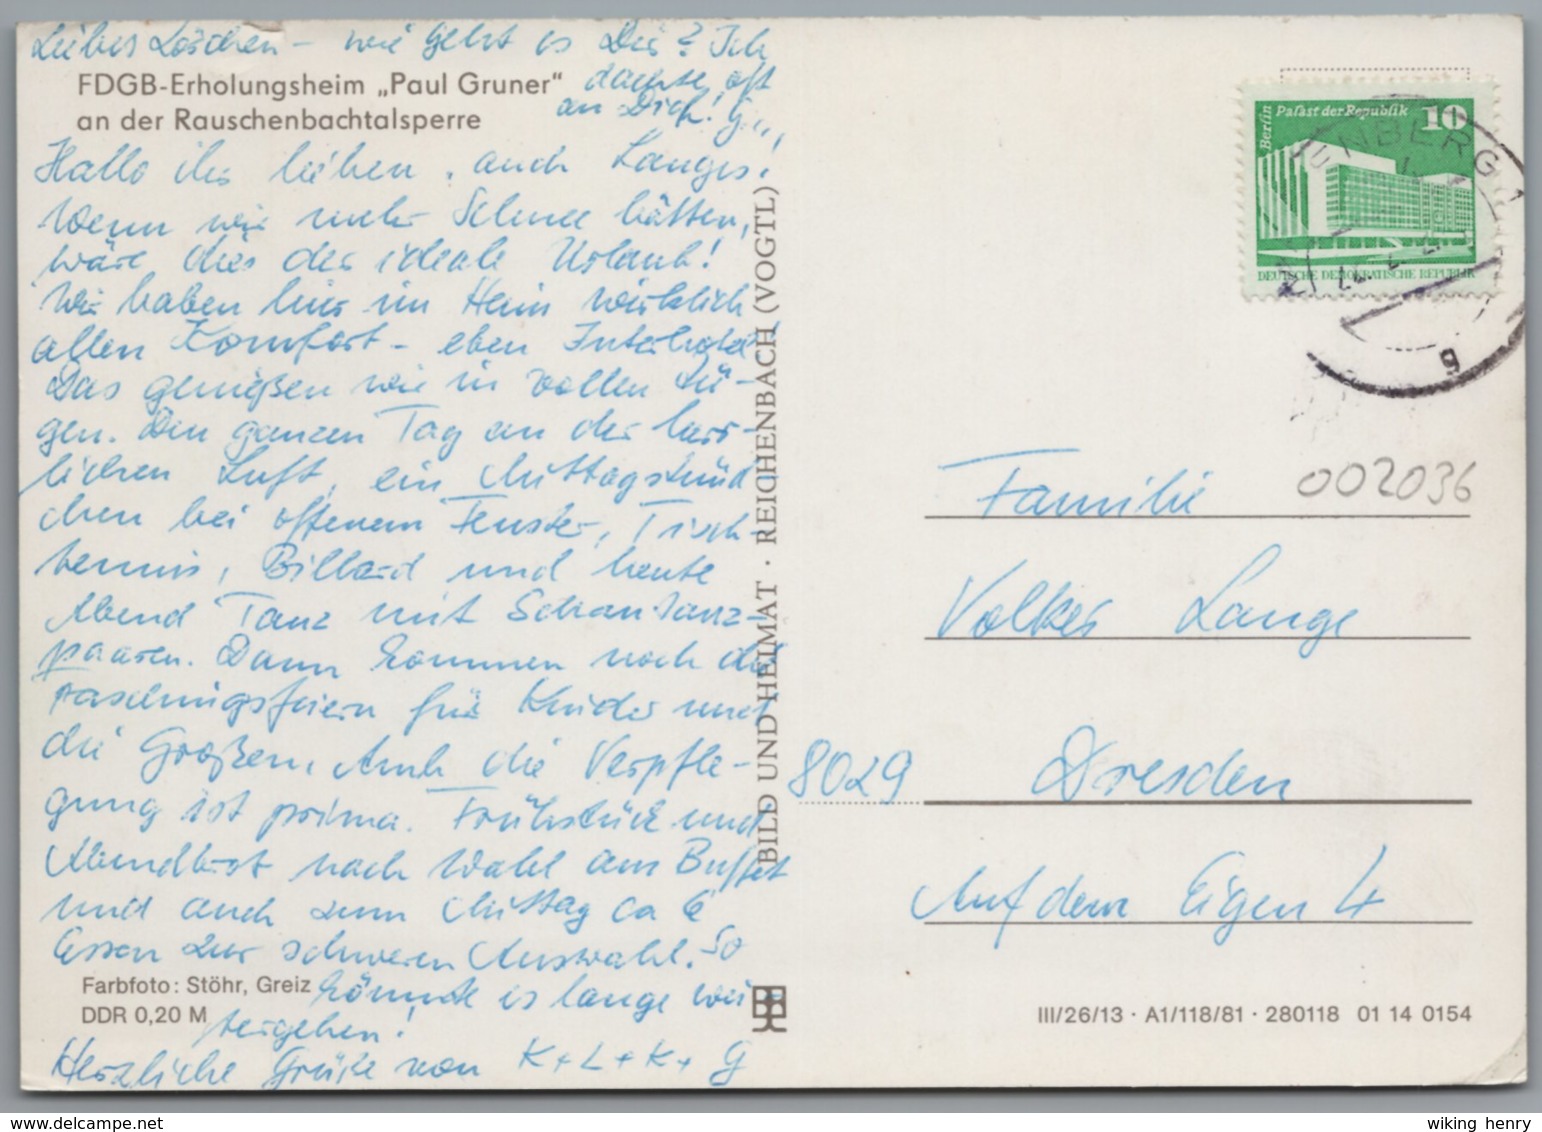 Liebes Löschen – wie geht es Dir? Ich
dachte oft
an Dich! G.
FDGB-Erholungsheim „Paul Gruner“
an der Rauschenbachtalsperre
Hallo ihr lieben, auch Langes!
Wenn wir mehr Schnee hätten,
wäre dies der ideale Urlaub!
Wir haben hier im Heim wirklich
allen Komfort – eben Interhotel
Das genießen wir in vollen Zü-
gen. Den ganzen Tag an der herr-
lichen Luft, ein Mittagsstünd
chen bei offenem Fenster, Tisch-
tennis, Billard und heute
Abend Tanz mit Schautanz-
paaren. Dann kommen noch die
Faschingsfeiern für Kinder und
die Großen. Auch die Verpfle-
gung ist prima. Frühstück und
Abendbrot nach Wahl am Buffet
und auch zum Mittag ca 6
Essen zur schweren Auswahl. So
könnte es lange wei-
tergehen!
Herzliche Grüße von K + L + K + G
Farbfoto: Stöhr, Greiz
DDR 0,20 M
BILD UND HEIMAT · REICHENBACH (VOGTL)
Berlin
Palast der Republik
10
DEUTSCHE DEMOKRATISCHE REPUBLIK
NBERG 1
g
002036
Familie
Volker Lange
8029 Dresden
Auf dem Eigen 4
III/26/13 · A1/118/81 · 280118 01 14 0154
wiking henry